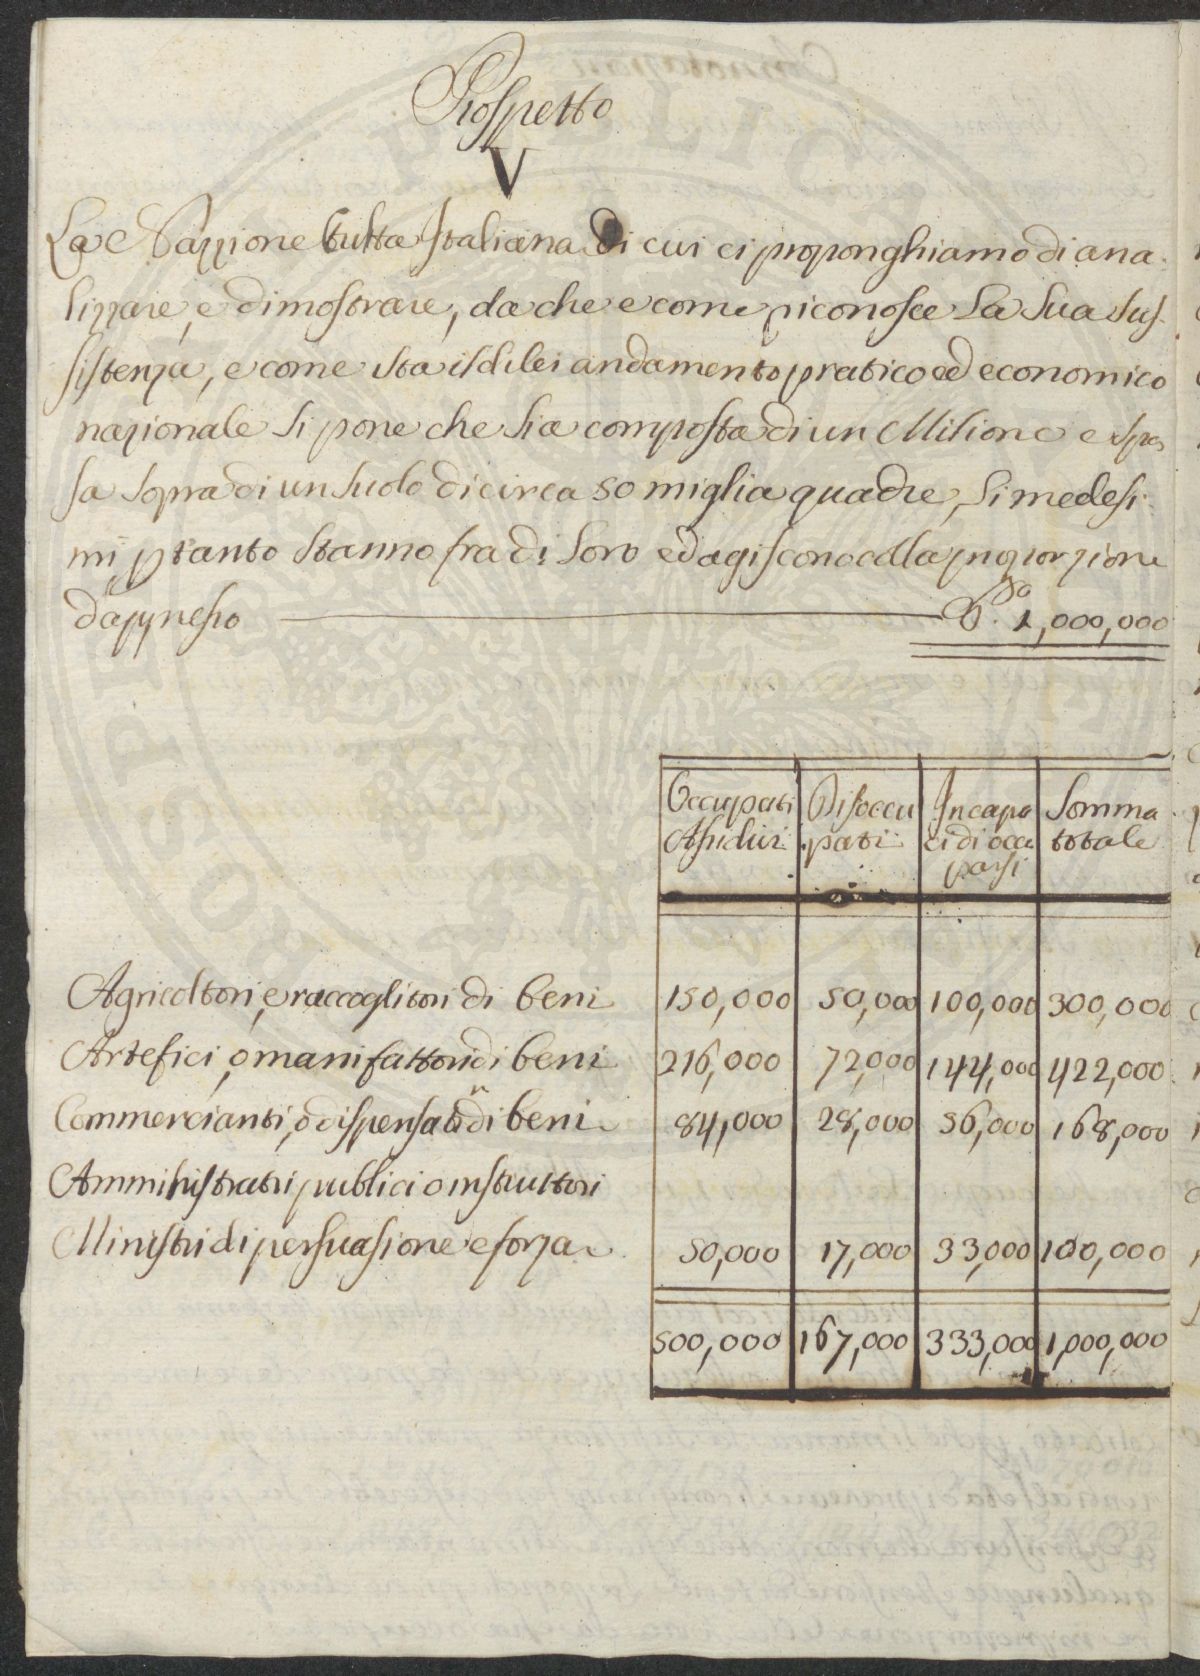 Prospetto
V
La Nazzione tutta Italiana di cui ci proponghiamo di ana
lizzare, e dimostrare, da che e come riconosce la sua sus
sistenza, e come sta il di lei andamento pratico ed economico
nazionale si pone che sia composta di un Milione e spar
sa sopra di un suolo di circa 50 miglia quadre, li medesi
mi ptanto stanno fra di loro ed agiscono colla proporzione
dappresso 1,000,000
Occupati Assidui Disoccu pati Incapa ci di occu parsi Somma totale
Agricoltori, e raccoglitori di beni 150,000 50,000 100,000 300,000
Artefici, o manifattori di beni 216,000 72,000 144,000 422,000
Commercianti, o dispensatri di beni 84,000 28,000 56,000 168,000
Amministratri publici o instruttori
Ministri di persuasione e forza 50,000 17,000 33,000 100,000
500,000 167,000 333,000 1,000,000